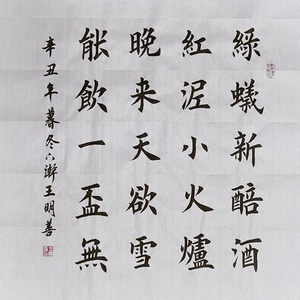 綠蟻新醅酒
紅泥小火爐
晚来天欲雪
能飲一盃無
辛丑年暮冬六瀞王明善